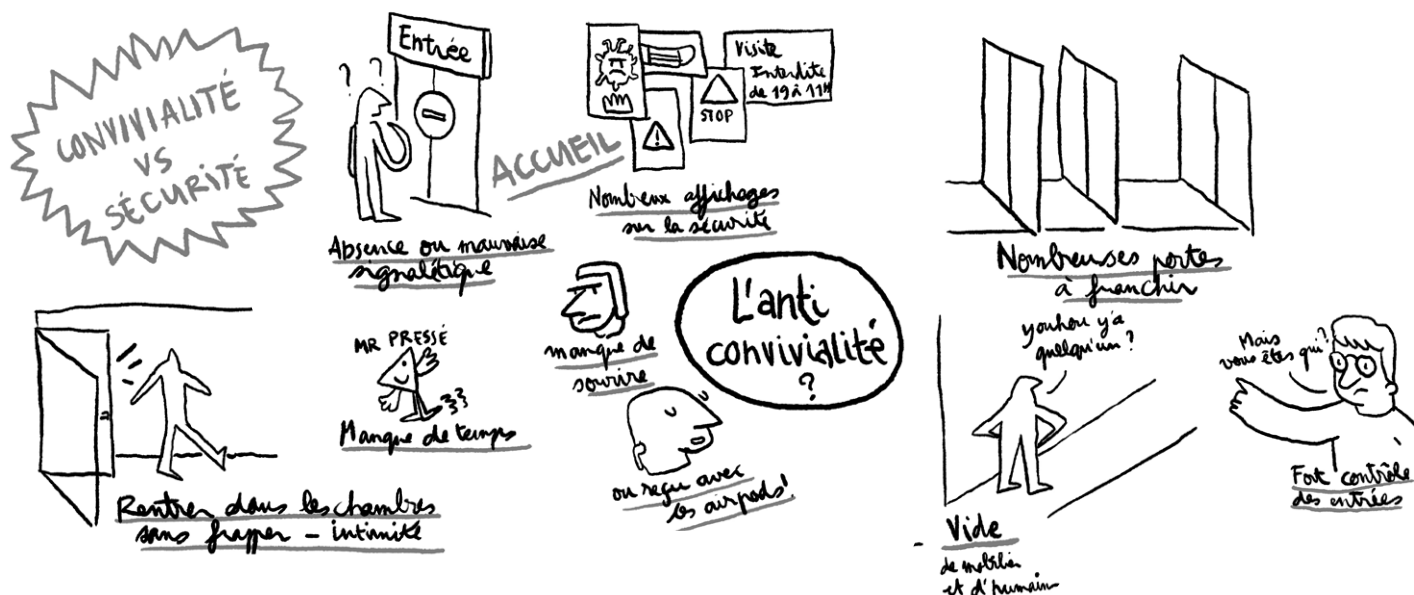 CONVIVIALITÉ
VS
SÉCURITÉ
? ?
Entrée
Absence ou mauvaise
signalétique
ACCUEIL
STOP
Visite
Interdite
de 19 à 11H
Nombreux affichages
sur la sécurité
Nombreuses portes
à franchir
Rentrer dans les chambres
sans frapper – intimité
MR PRESSÉ
Manque de temps
manque de
sourire
ou reçu avec
les airpods!
L'anti
convivialité
?
youhou y'a
quelqu'un?
Vide
de mobilier
et d'humain
Mais
vous êtes qui?
Fort contrôle
des entrées